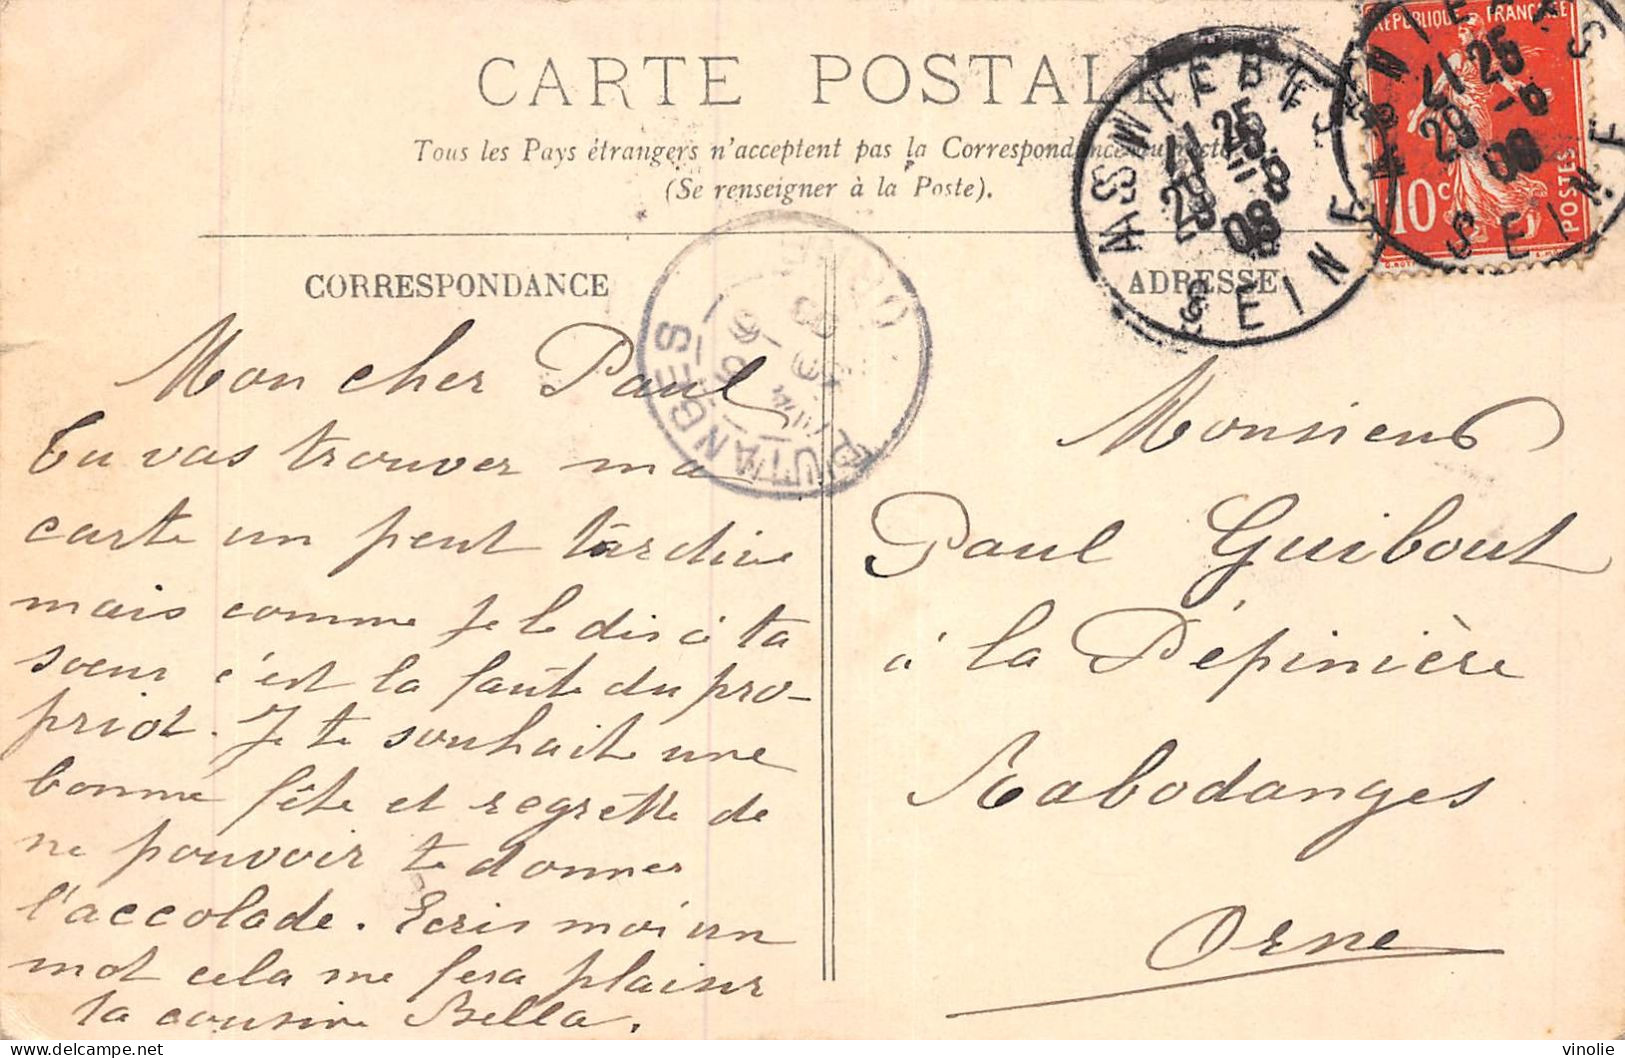 CARTE POSTALE
Tous les Pays étrangers n'acceptent pas la Correspondance au recto
(Se renseigner à la Poste).
CORRESPONDANCE
ADRESSE
REPUBLIQUE FRANÇAISE
10c
POSTES
ASNIERES
21 25
29 -8
08
SEINE
PUTANGES
ORNE
Mon cher Paul
Tu vas trouver ma
carte un peut tardive
mais comme je le dis à ta
soeur c'est la faute du pro-
priot. Je te souhaite une
bonne fête et regrette de
ne pouvoir te donner
l'accolade. Ecris moi un
mot cela me fera plaisir
ta cousine Bella.
Monsieur
Paul Guibout
à la Pépinière
Rabodanges
Orne
vinolie